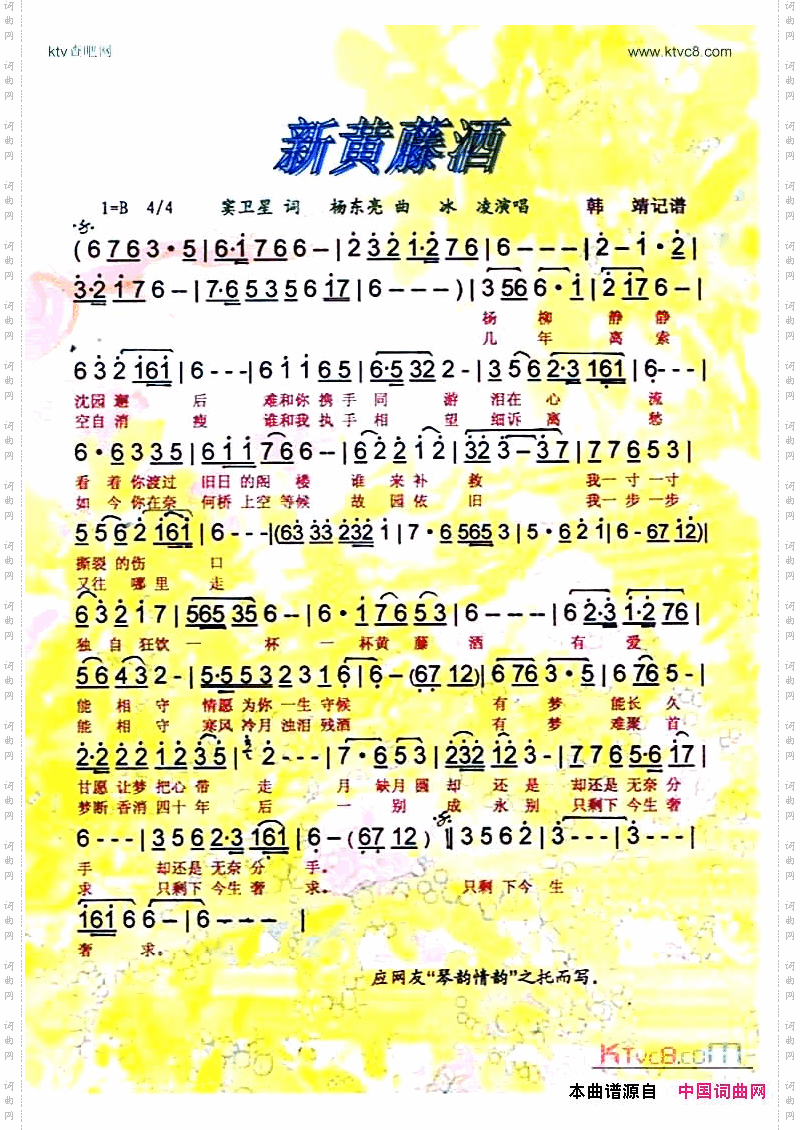 ktv杳吧网 www.ktvc8.com
新黄藤酒
1=B 4/4 窦卫星 词 杨东亮 曲 冰 凌演唱 韩 靖记谱
(6 7 6 3·5|6·1 7 6 6–|2 3 2 1·2 7 6|6–––|2–1·2|
3·2 1 7 6–|7·6 5 3 5 6 1 7|6–––)|3 5 6 6·1|2 1 7 6–|
杨 柳 静 静
几 年 离 索
6 3 2 1 6 1|6---|6 1 1 6 5|6·5 3 2 2-|3 5 6 2·3 1 6 1|6---|
沈园 邂 后 难和你 携 手 同 游 泪在 心 流
空自 消 瘦 谁和我 执 手 相 望 细诉 离 愁
6·6 3 3 5|6 1 1 7 6 6–|6 2 2 1 2|3 2 3–3 7|7 7 6 5 3|
看 着 你渡过 旧日 的阁 楼 谁 来 补 救 我一 寸 一寸
如 今 你在奈 何桥 上空 等候 故 园 依 旧 我一 步 一步
5 5 6 2 1 6 1|6---|(6 3 3 3 2 3 2 1|7·6 5 6 5 3|5·6 2 1|6-6 7 1 2)|
撕裂 的伤 口
又往 哪 里 走
6 3 2 1 7|5 6 5 3 5 6--|6·1 7 6 5 3|6---|6 2·3 1·2 7 6|
独 自 狂饮 一 杯 一 杯黄 藤 酒 有 爱
5 6 4 3 2-|5·5 5 3 2 3 1 6|6-(6 7 1 2)|6 7 6 3·5|6 7 6 5-|
能 相 守 情愿 为你 一生 守候 有 梦 能长 久
能 相 守 寒风 冷月 浊泪 残酒 有 梦 难聚 首
2·2 2 2 1 2 3 5|2--|7·6 5 3|2 3 2 1 2 3-|7 7 6 5·6 1 7|
甘愿 让梦 把心 带 走 月 缺月 圆 却 还 是 却还是 无奈 分
梦断 香消 四十 年 后 一 别 成 永 别 只剩下 今生 奢
6---|3 5 6 2·3 1 6 1|6–(6 7 1 2)|3 5 6 2|3---|3---|
手 却还是 无奈 分 手。
求 只剩下 今生 奢 求。 只剩 下今 生
1 6 1 6 6–|6––– |
奢 求。
应网友“琴韵情韵”之托而写.
KTvc8.com
本曲谱源自 中国词曲网